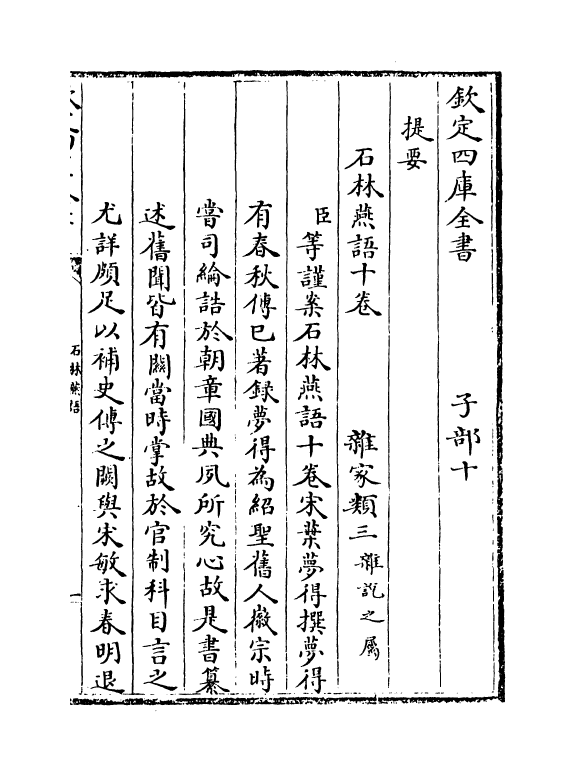 欽定四庫全書　子部十
提要
石林燕語十卷　雜家類三雜說之屬
臣等謹案石林燕語十卷宋葉夢得撰夢得
有春秋傳已著録夢得為紹聖舊人徽宗時
嘗司綸誥於朝章國典夙所究心故是書纂
述舊聞皆有闗當時掌故於官制科目言之
尤詳頗足以補史傳之闕與宋敏求春明退
石林燕語